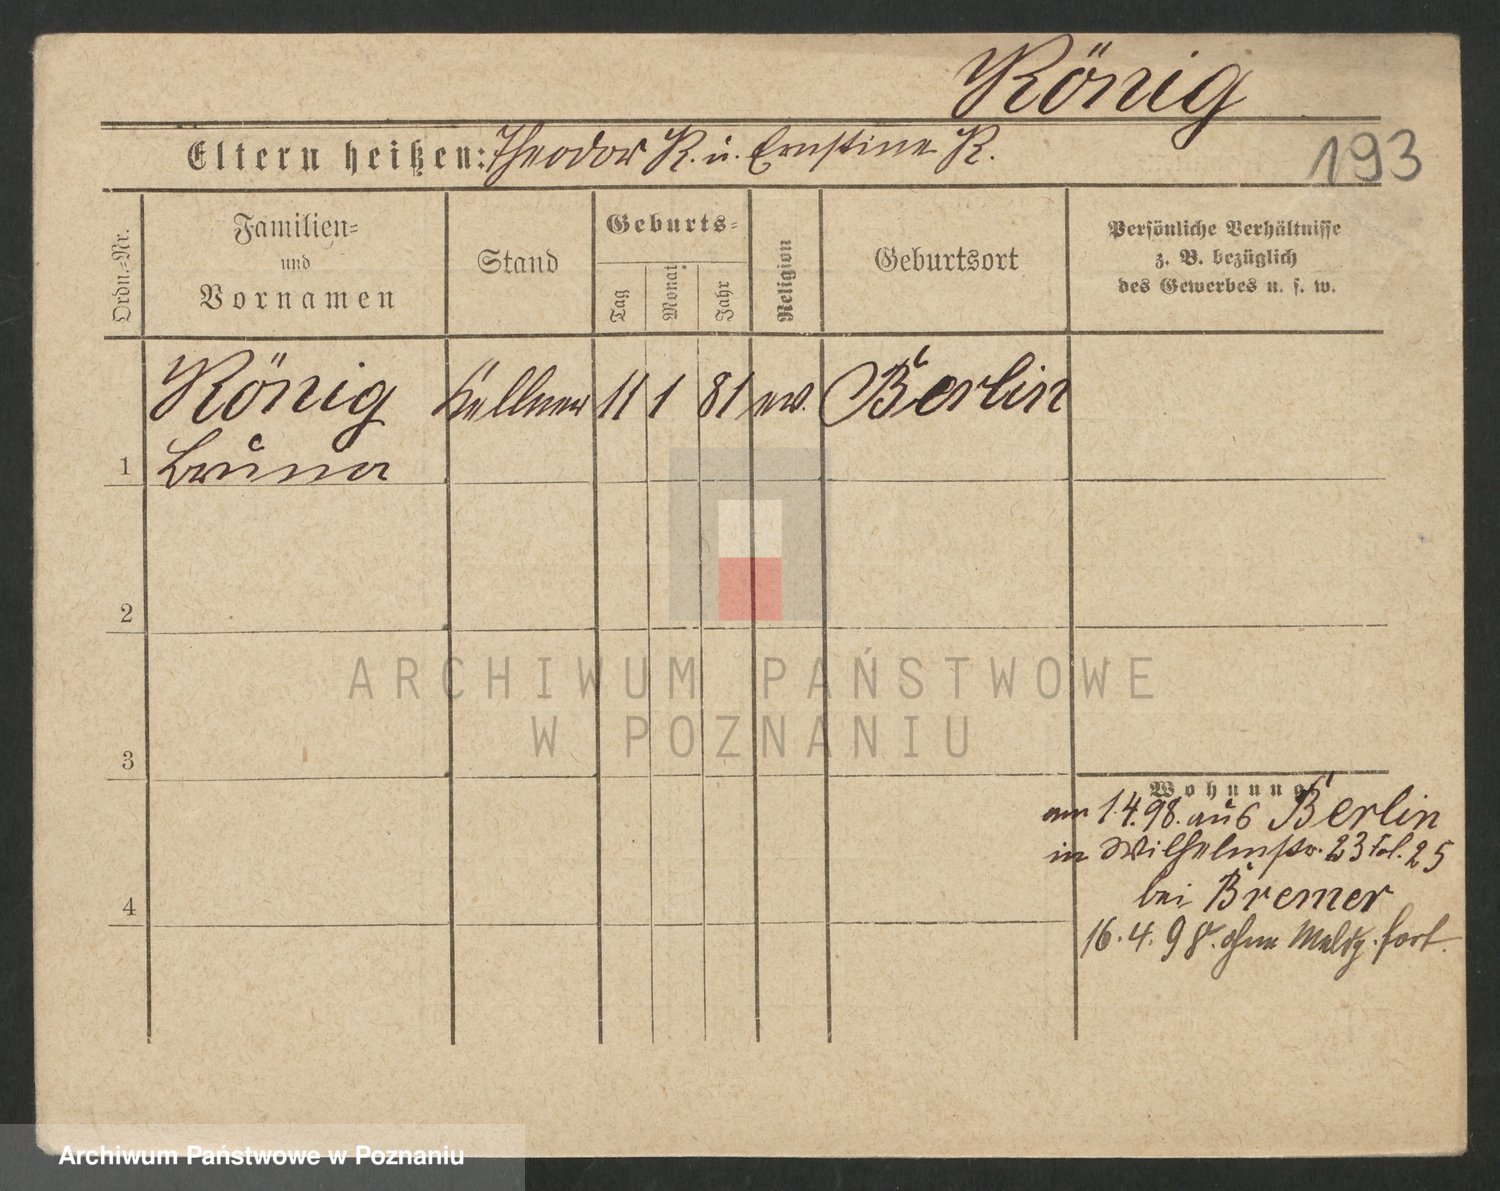 König
Eltern heißen: Theodor K. u. Ernstine K.
193
Ordn.-Nr.
Familien-
und
Vornamen
Stand
Geburts-
Tag
Monat
Jahr
Religion
Geburtsort
Persönliche Verhältnisse
z. B. bezüglich
des Gewerbes u. s. w.
König Kellner 11 1 81 ev. Berlin
1 Bruno
2
3
4
Wohnung
am 1.4.98. aus Berlin
in Wilhelmstr. 23 25
bei Bremer
16.4.98. ohne Meldg. fort.
ARCHIWUM PAŃSTWOWE
W POZNANIU
Archiwum Państwowe w Poznaniu